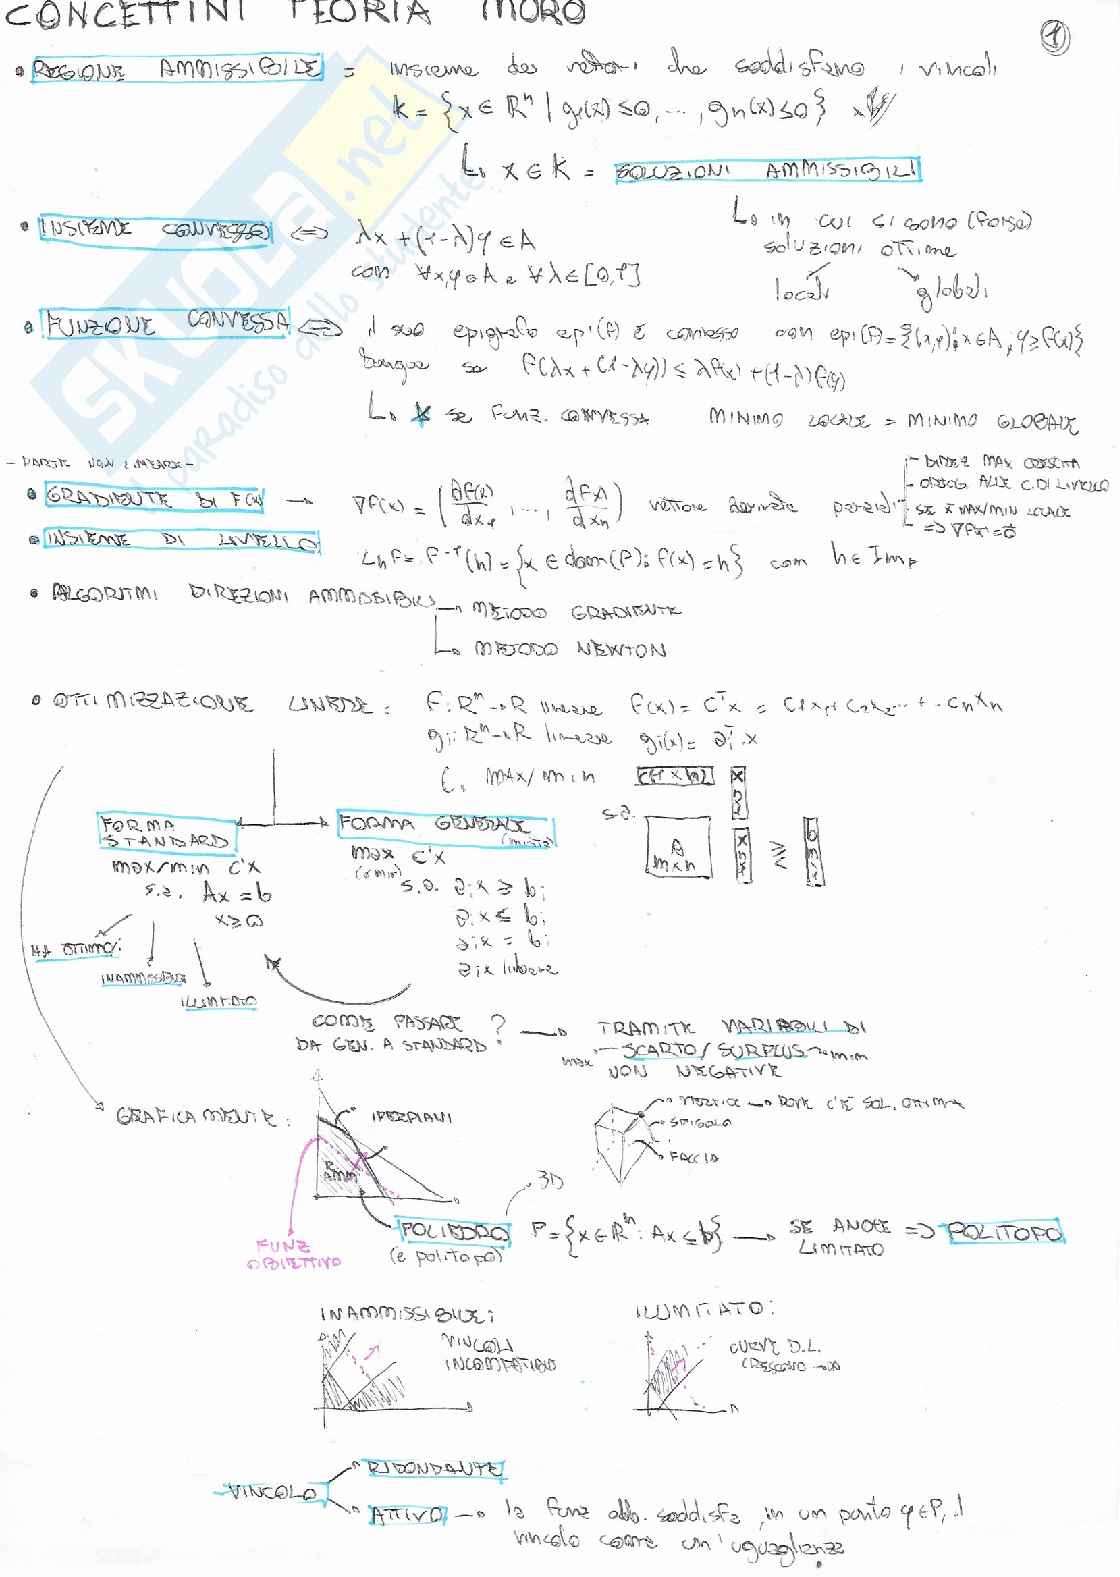 CONCETTINI TEORIA MORO
1
• REGIONE AMMISSIBILE = insieme dei vettori che soddisfano i vincoli
K = {x ∈ R^n | g1(x) ≤ 0, ..., gn(x) ≤ 0}
L→ x ∈ K = SOLUZIONI AMMISSIBILI
L→ in cui ci sono (forse)
soluzioni ottime
locali globali
• INSIEME CONVESSO <=> λx + (1-λ)y ∈ A
con ∀x,y ∈ A e ∀λ ∈ [0,1]
• FUNZIONE CONVESSA <=> il suo epigrafo epi(f) è convesso con epi(f) = {(x,y): x ∈ A; y ≥ f(x)}
dunque se f(λx + (1-λy)) ≤ λf(x) + (1-λ)f(y)
L→ se FUNZ. CONVESSA MINIMO LOCALE = MINIMO GLOBALE
- PARTE NON LINEARE -
• GRADIENTE DI F(x) → ∇f(x) = (∂f(x)/dx1, ..., df(x)/dxn) vettore derivate parziali
- DIREZ MAX CRESCITA
- ORTOG ALLE C. DI LIVELLO
- SE x̄ MAX/MIN LOCALE
=> ∇f(x̄) = 0
• INSIEME DI LIVELLO
Lhf = f^-1(h) = {x ∈ dom(f): f(x) = h} con h ∈ Imf
• ALGORITMI DIREZIONI AMMISSIBILI → METODO GRADIENTE
L→ METODO NEWTON
• OTTIMIZZAZIONE LINEARE: f: R^n → R lineare f(x) = c^T x = c1x1 + c2x2 ... + cnxn
gi: R^n → R lineare gi(x) = ai^T · x
L→ MAX/min c(1×n) x n×1
s.a. A m×n x n×1 ≥ ≤ b m×1
FORMA STANDARD
max/min c'x
s.a. Ax = b
x ≥ 0
FORMA GENERALE (mista)
max c'x
(o min)
s.a. aix ≥ bi
aix ≤ bi
aix = bi
aix libere
H∃ OTTIMO/I
INAMMISSIBILE
ILLIMITATO
COME PASSARE ? → TRAMITE VARIABILI DI
DA GEN. A STANDARD
max - SCARTO / SURPLUS → min
NON NEGATIVE
GRAFICAMENTE:
IPERPIANI
R AMM
VERTICE → DOVE C'È SOL. OTTIMA
SPIGOLO
FACCIA
3D
FUNZ OBIETTIVO
POLIEDRO P = {x ∈ R^n: Ax ≤ b} → SE ANCHE LIMITATO => POLITOPO
(e politopo)
INAMMISSIBILE:
VINCOLI
INCOMPATIBILI
ILLIMITATO:
CURVE D.L.
CRESCONO → ∞
VINCOLO → RIDONDANTE
→ ATTIVO → la funz obb. soddisfa, in un punto y ∈ P, il
vincolo come un'uguaglianza
SKUOLA.net
il paradiso dello studente